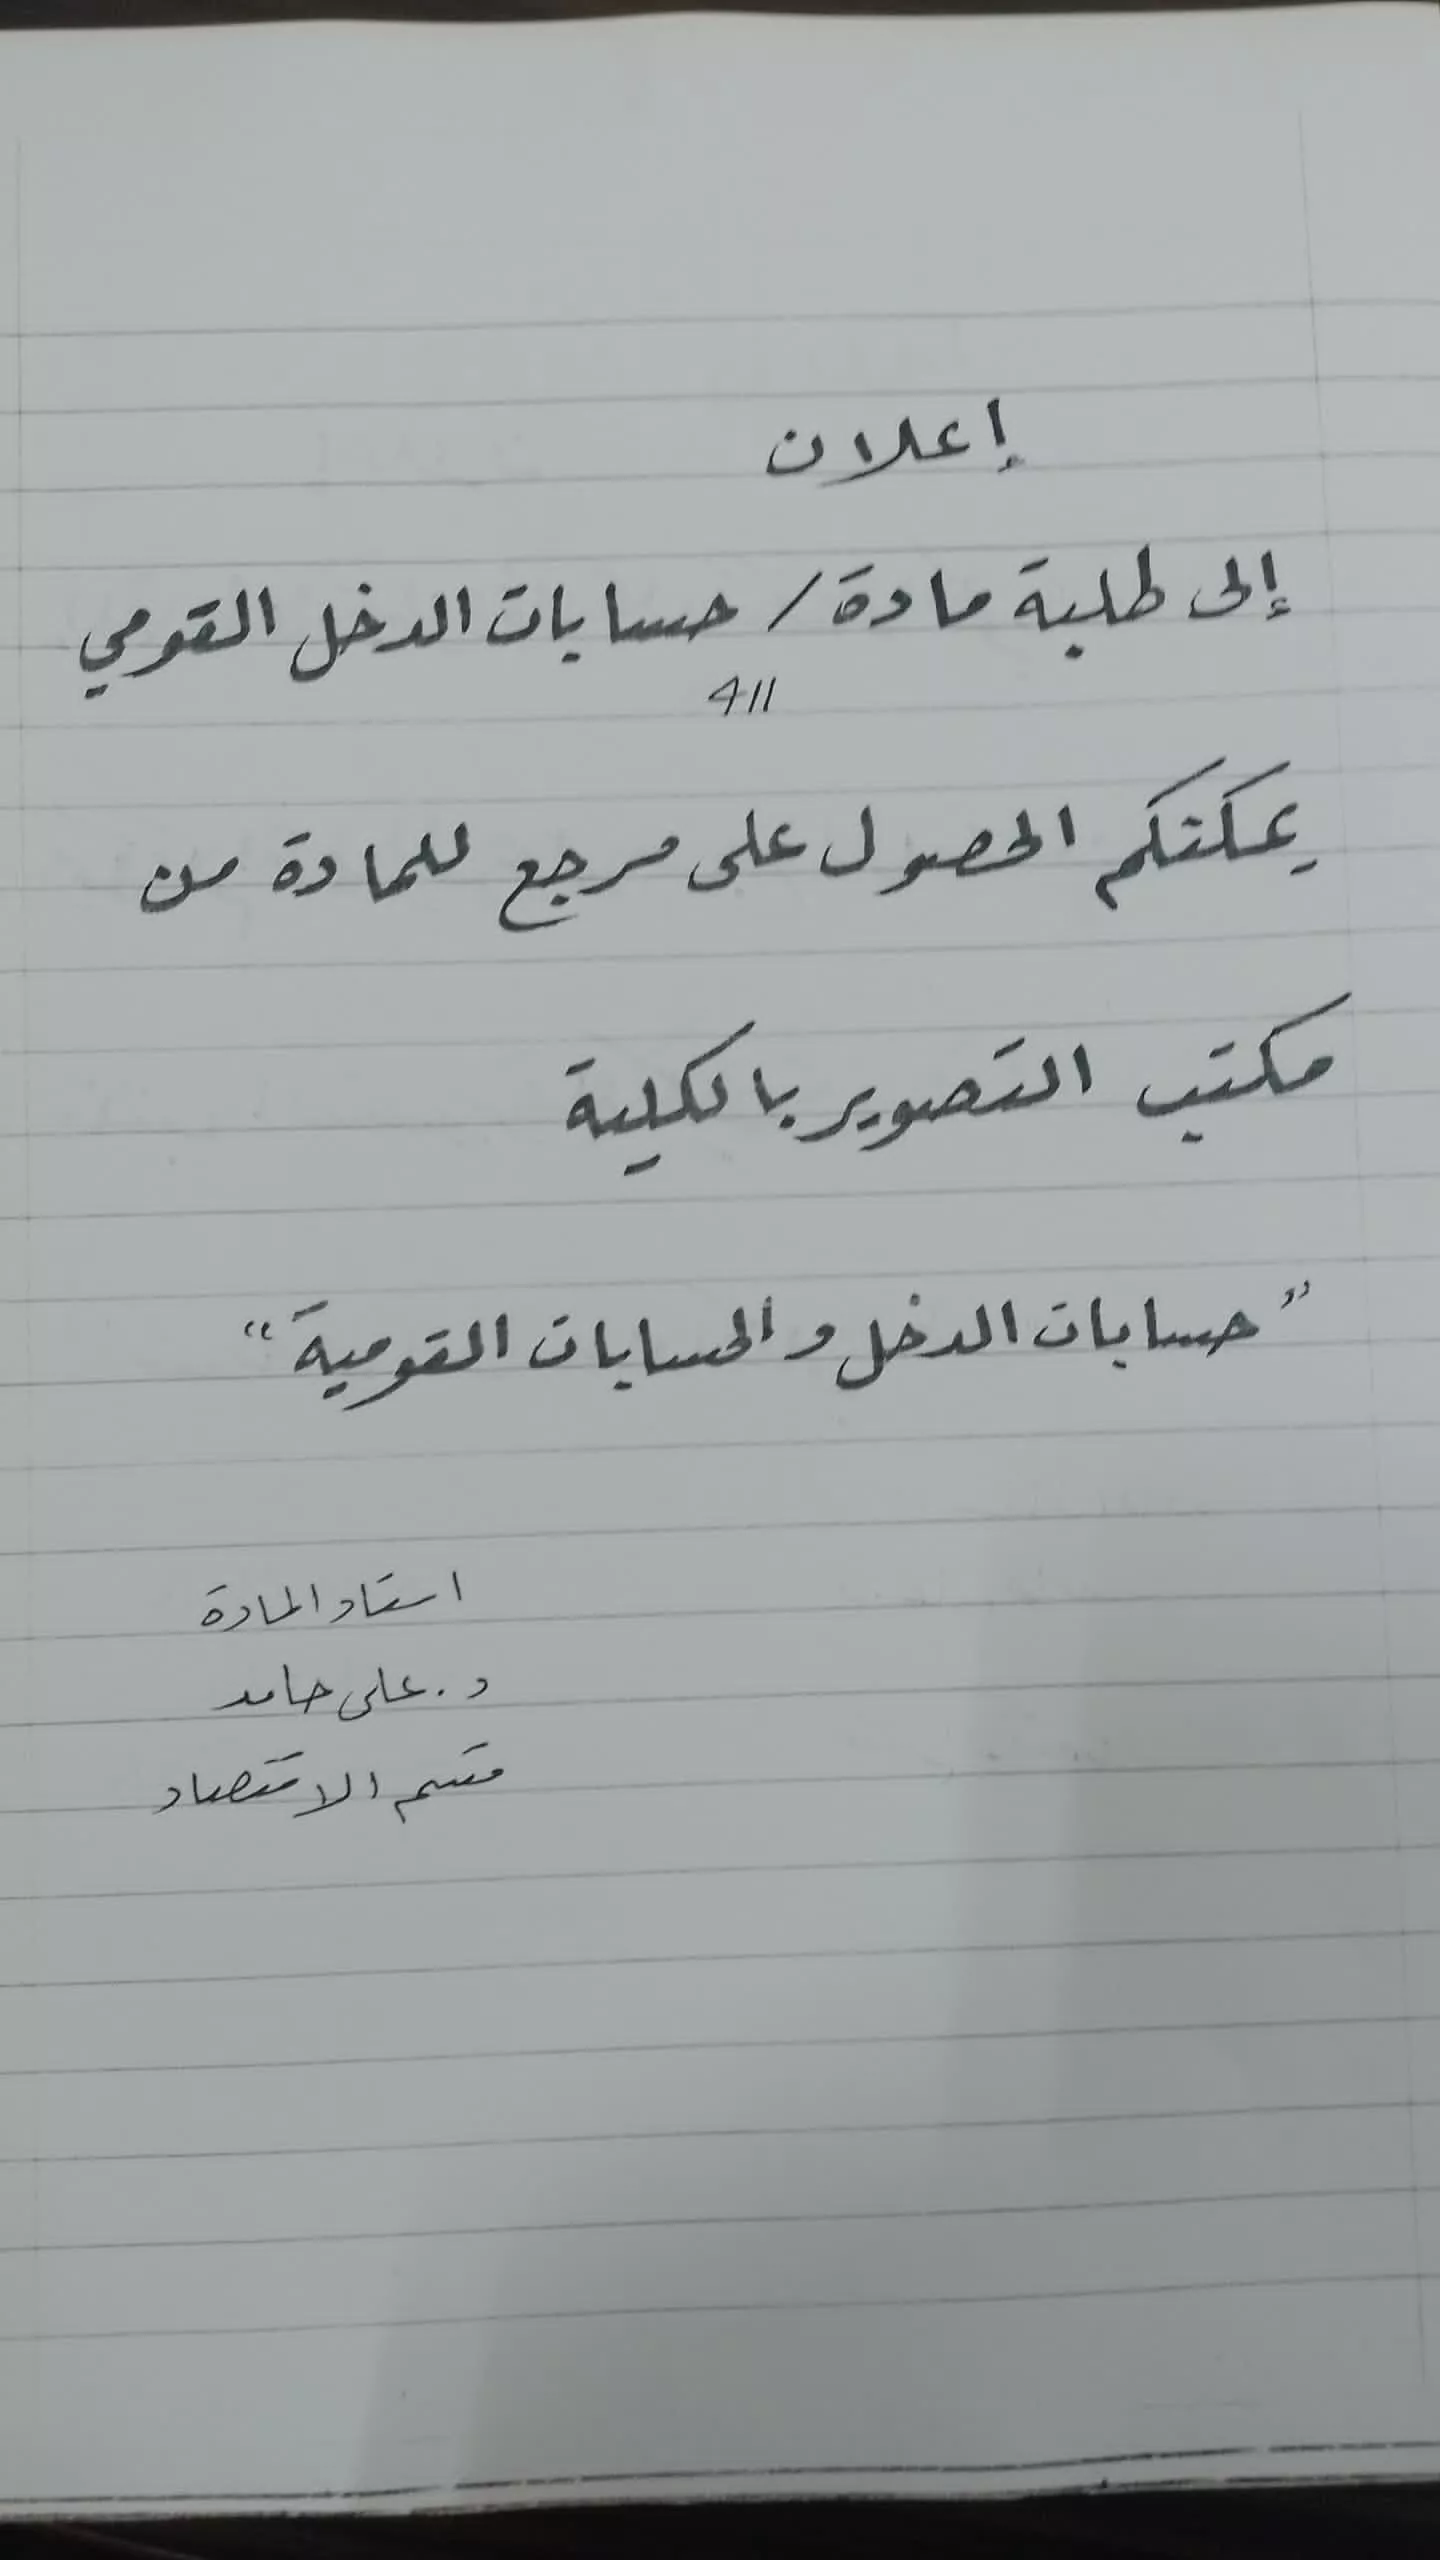 إعلان
إلى طلبة مادة / حسابات الدخل القومي
411
يمكنكم الحصول على مرجع للمادة من
مكتب التصوير بالكلية
"حسابات الدخل والحسابات القومية"
استاذ المادة
د. على حامد
قسم الاقتصاد